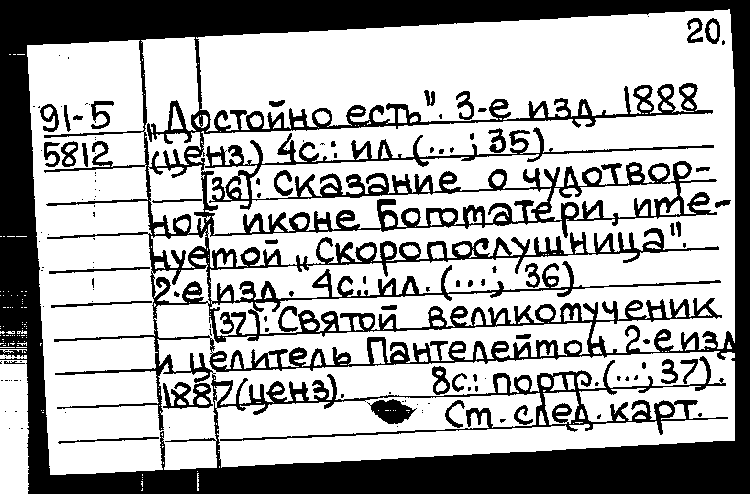 20.
91-5 „Достойно есть". 3-е изд. 1888
5812 (ценз.) 4с.: ил. (...; 35).
[36]: Сказание о чудотвор-
ной иконе Богоматери, име-
нуемой „Скоропослушница".
2-е изд. 4с.: ил. (...; 36)
[37]: Святой великомученик
и целитель Пантелеймон. 2-е изд
1887 (ценз). 8с.: портр. (...; 37).
См. след. карт.